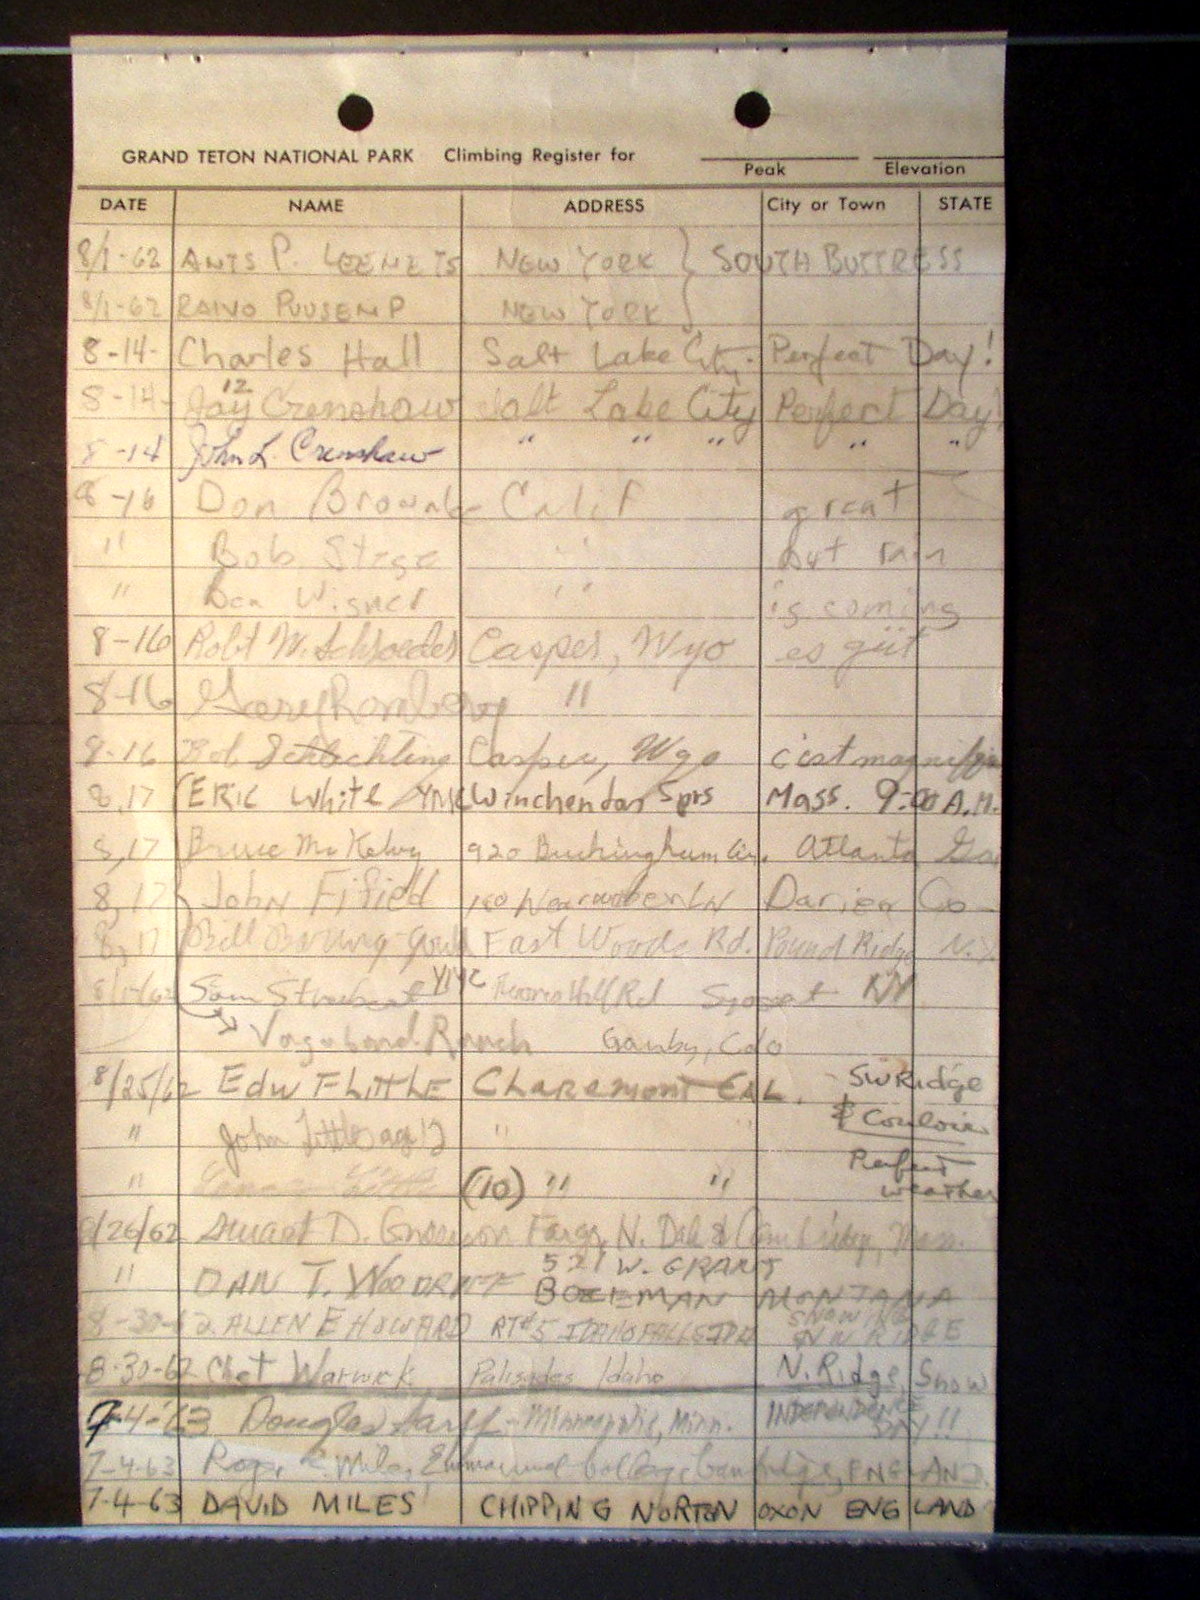 GRAND TETON NATIONAL PARK Climbing Register for
Peak Elevation
DATE NAME ADDRESS City or Town STATE
8/1-62 ANTS P. LEEMETS NEW YORK } SOUTH BUTTRESS
8/1-62 RAIVO PUUSEMP NEW YORK
8-14- Charles Hall Salt Lake City. Perfect Day!
12
8-14- Jay Crenshaw Salt Lake City Perfect Day!
8-14 John L. Crenshaw " " " " "
8-16 Don Calif great
" Bob Stege " but rain
" Don " is coming
8-16 Robt W. Schroeder Casper, Wyo es gut
8-16 Gary "
8-16 Bob Schlachting Casper, Wyo c'est
8,17 ERIC White Winchendon Sprs Mass. 9:00 A.M.
8,17 Bruce McKelvy 920 Buckingham Atlanta Ga
8,17 John Fifield Darien Co
8,17 Bill Baring-Gould East Woods Rd. Pound Ridge N.Y.
Sam Hill Rd NY
Vagabond Ranch Granby, Colo
8/25/62 Edw F Little Claremont CAL. SW Ridge
" John Little age 12 " " & Couloir
" (10) " " Perfect
weather
8/26/62 Stuart D. Fargo, N. Dak & Cambridge, Mass.
521 W. GRANT
" DAN T. WOODRUFF BOZEMAN MONTANA
8-30-62 ALLEN E HOWARD RT#5 IDAHO FALLS IDA SNOWING
ON N RIDGE
8-30-62 Chet Warwick Palisades Idaho N. Ridge, Snow
7-4-63 Douglas Minneapolis, Minn. INDEPENDENCE
DAY!!
7-4-63 Roger Miles, Emmanuel College, Cambridge, ENGLAND.
7-4-63 DAVID MILES CHIPPING NORTON OXON ENGLAND